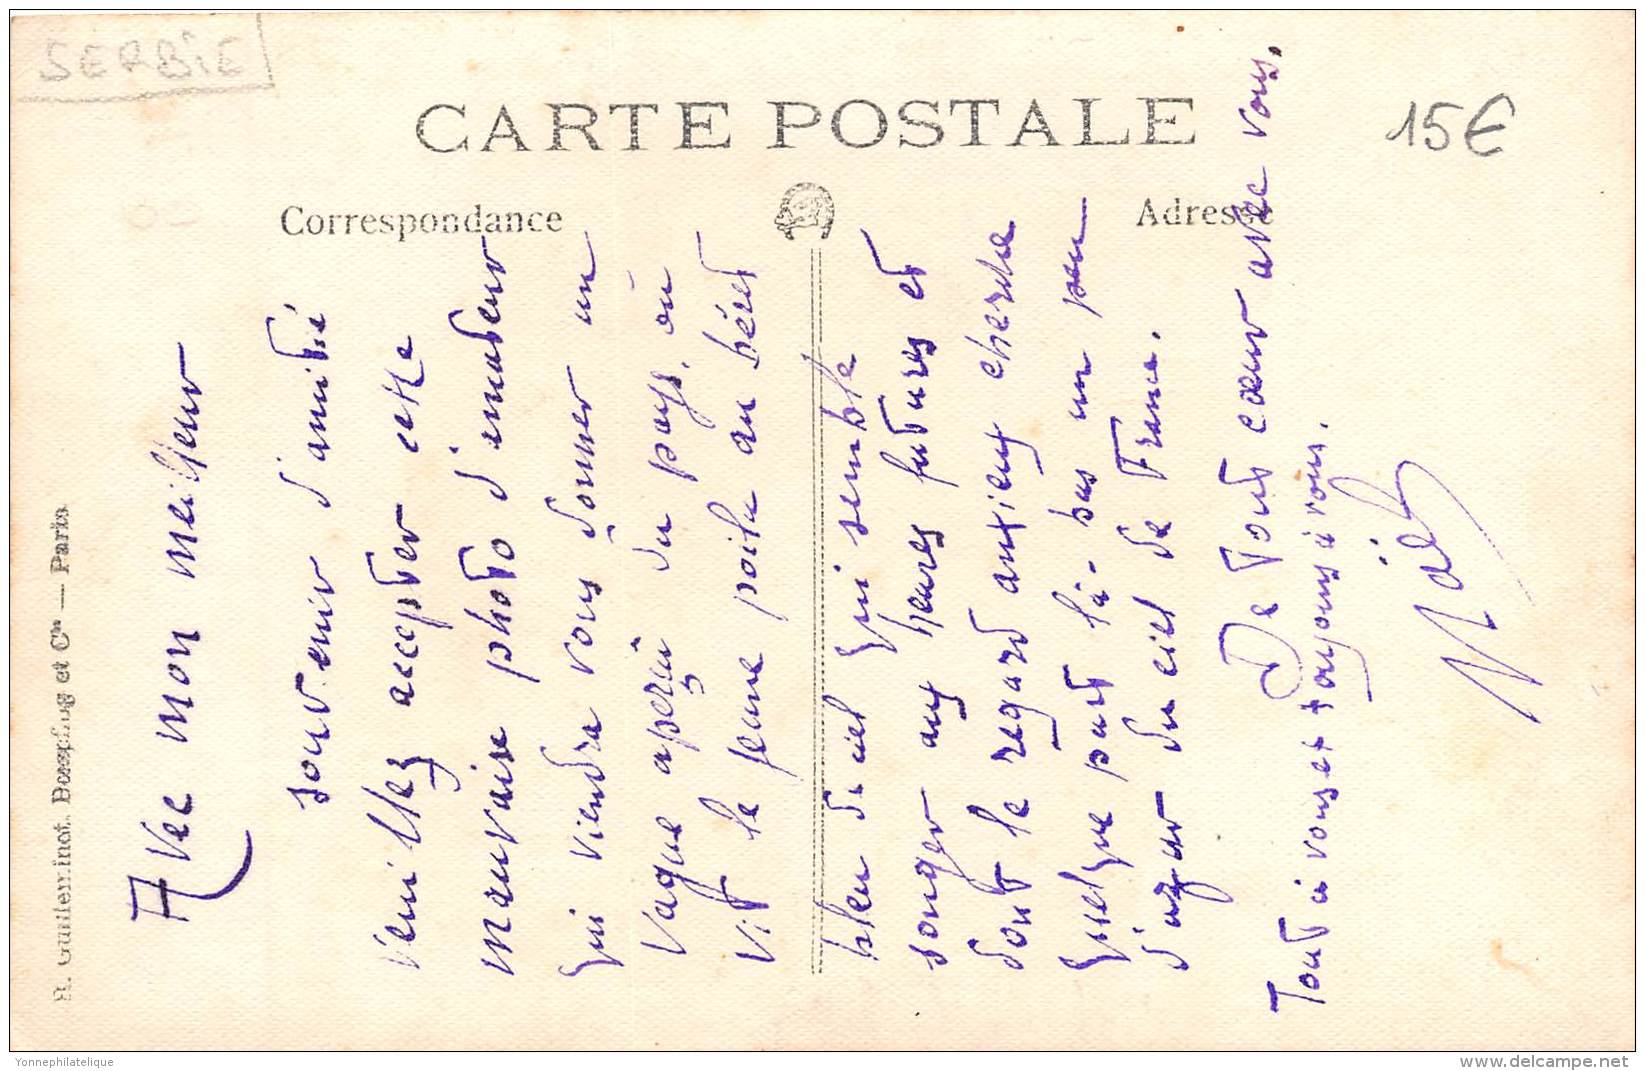 SERBIE
CARTE POSTALE
15€
Correspondance
Adresse
R. Guilleminot, Bœspflug et Cie — Paris
Avec mon meilleur
souvenir d'amitié
veuillez accepter cette
mauvaise photo d'amateur
qui viendra vous donner un
vague aperçu du pays, où
vit le jeune poilu au béret
bleu de ciel qui semble
songer aux heures futures et
dont le regard anxieux cherche
quelque part là-bas un peu
d'azur du ciel de France.
De tout cœur avec vous.
Tout à vous et toujours à vous.
Yonnephilatelique
www.delcampe.net